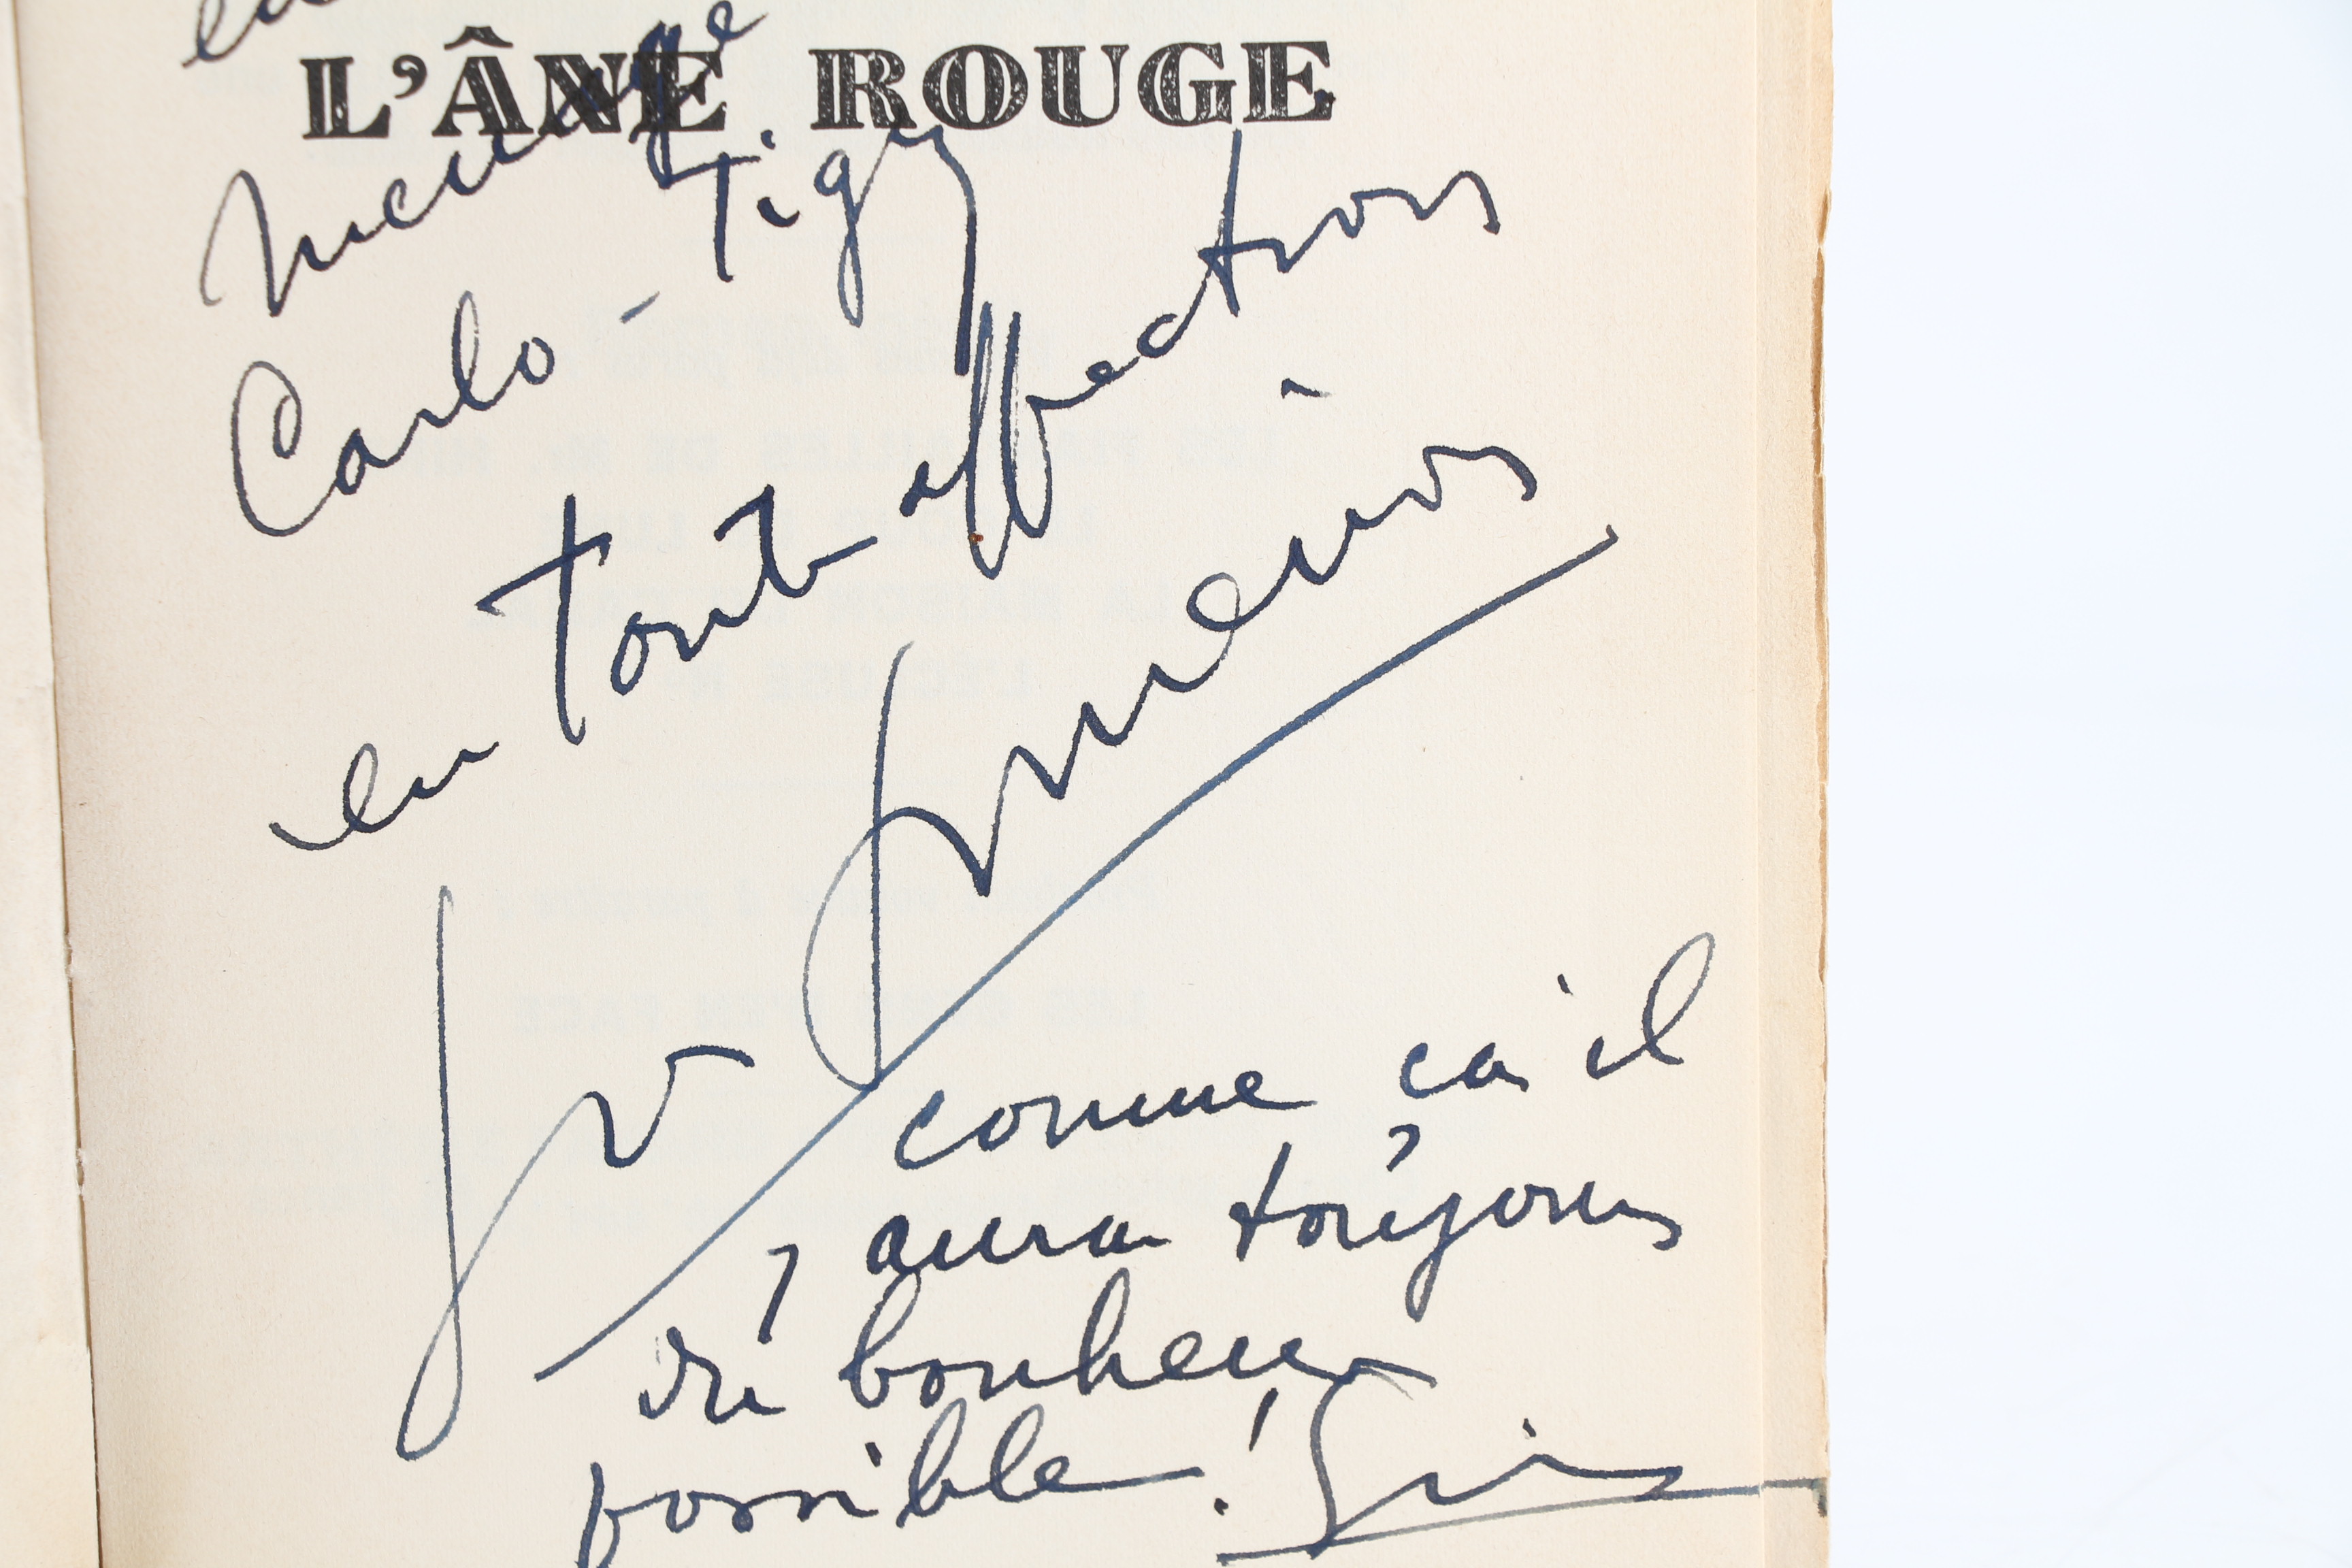 L'ÂNE ROUGE
ménage
Carlo - Tigy
en toute affection
Simenon
comme ça il
y aura toujours
du bonheur
possible! Sim